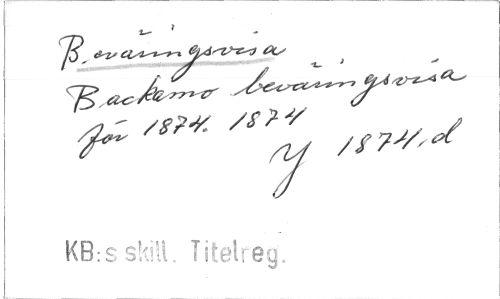 Beväringsvisa
Backamo beväringsvisa
för 1874. 1874
Y 1874.d
KB:s skill. Titelreg.